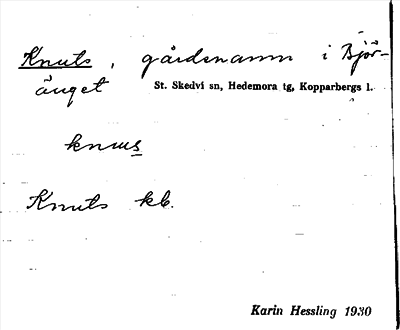 Knuts, gårdsnamn i Björ-
änget St. Skedvi sn, Hedemora tg, Kopparbergs l.
knus
Knuts kb.
Karin Hessling 1930